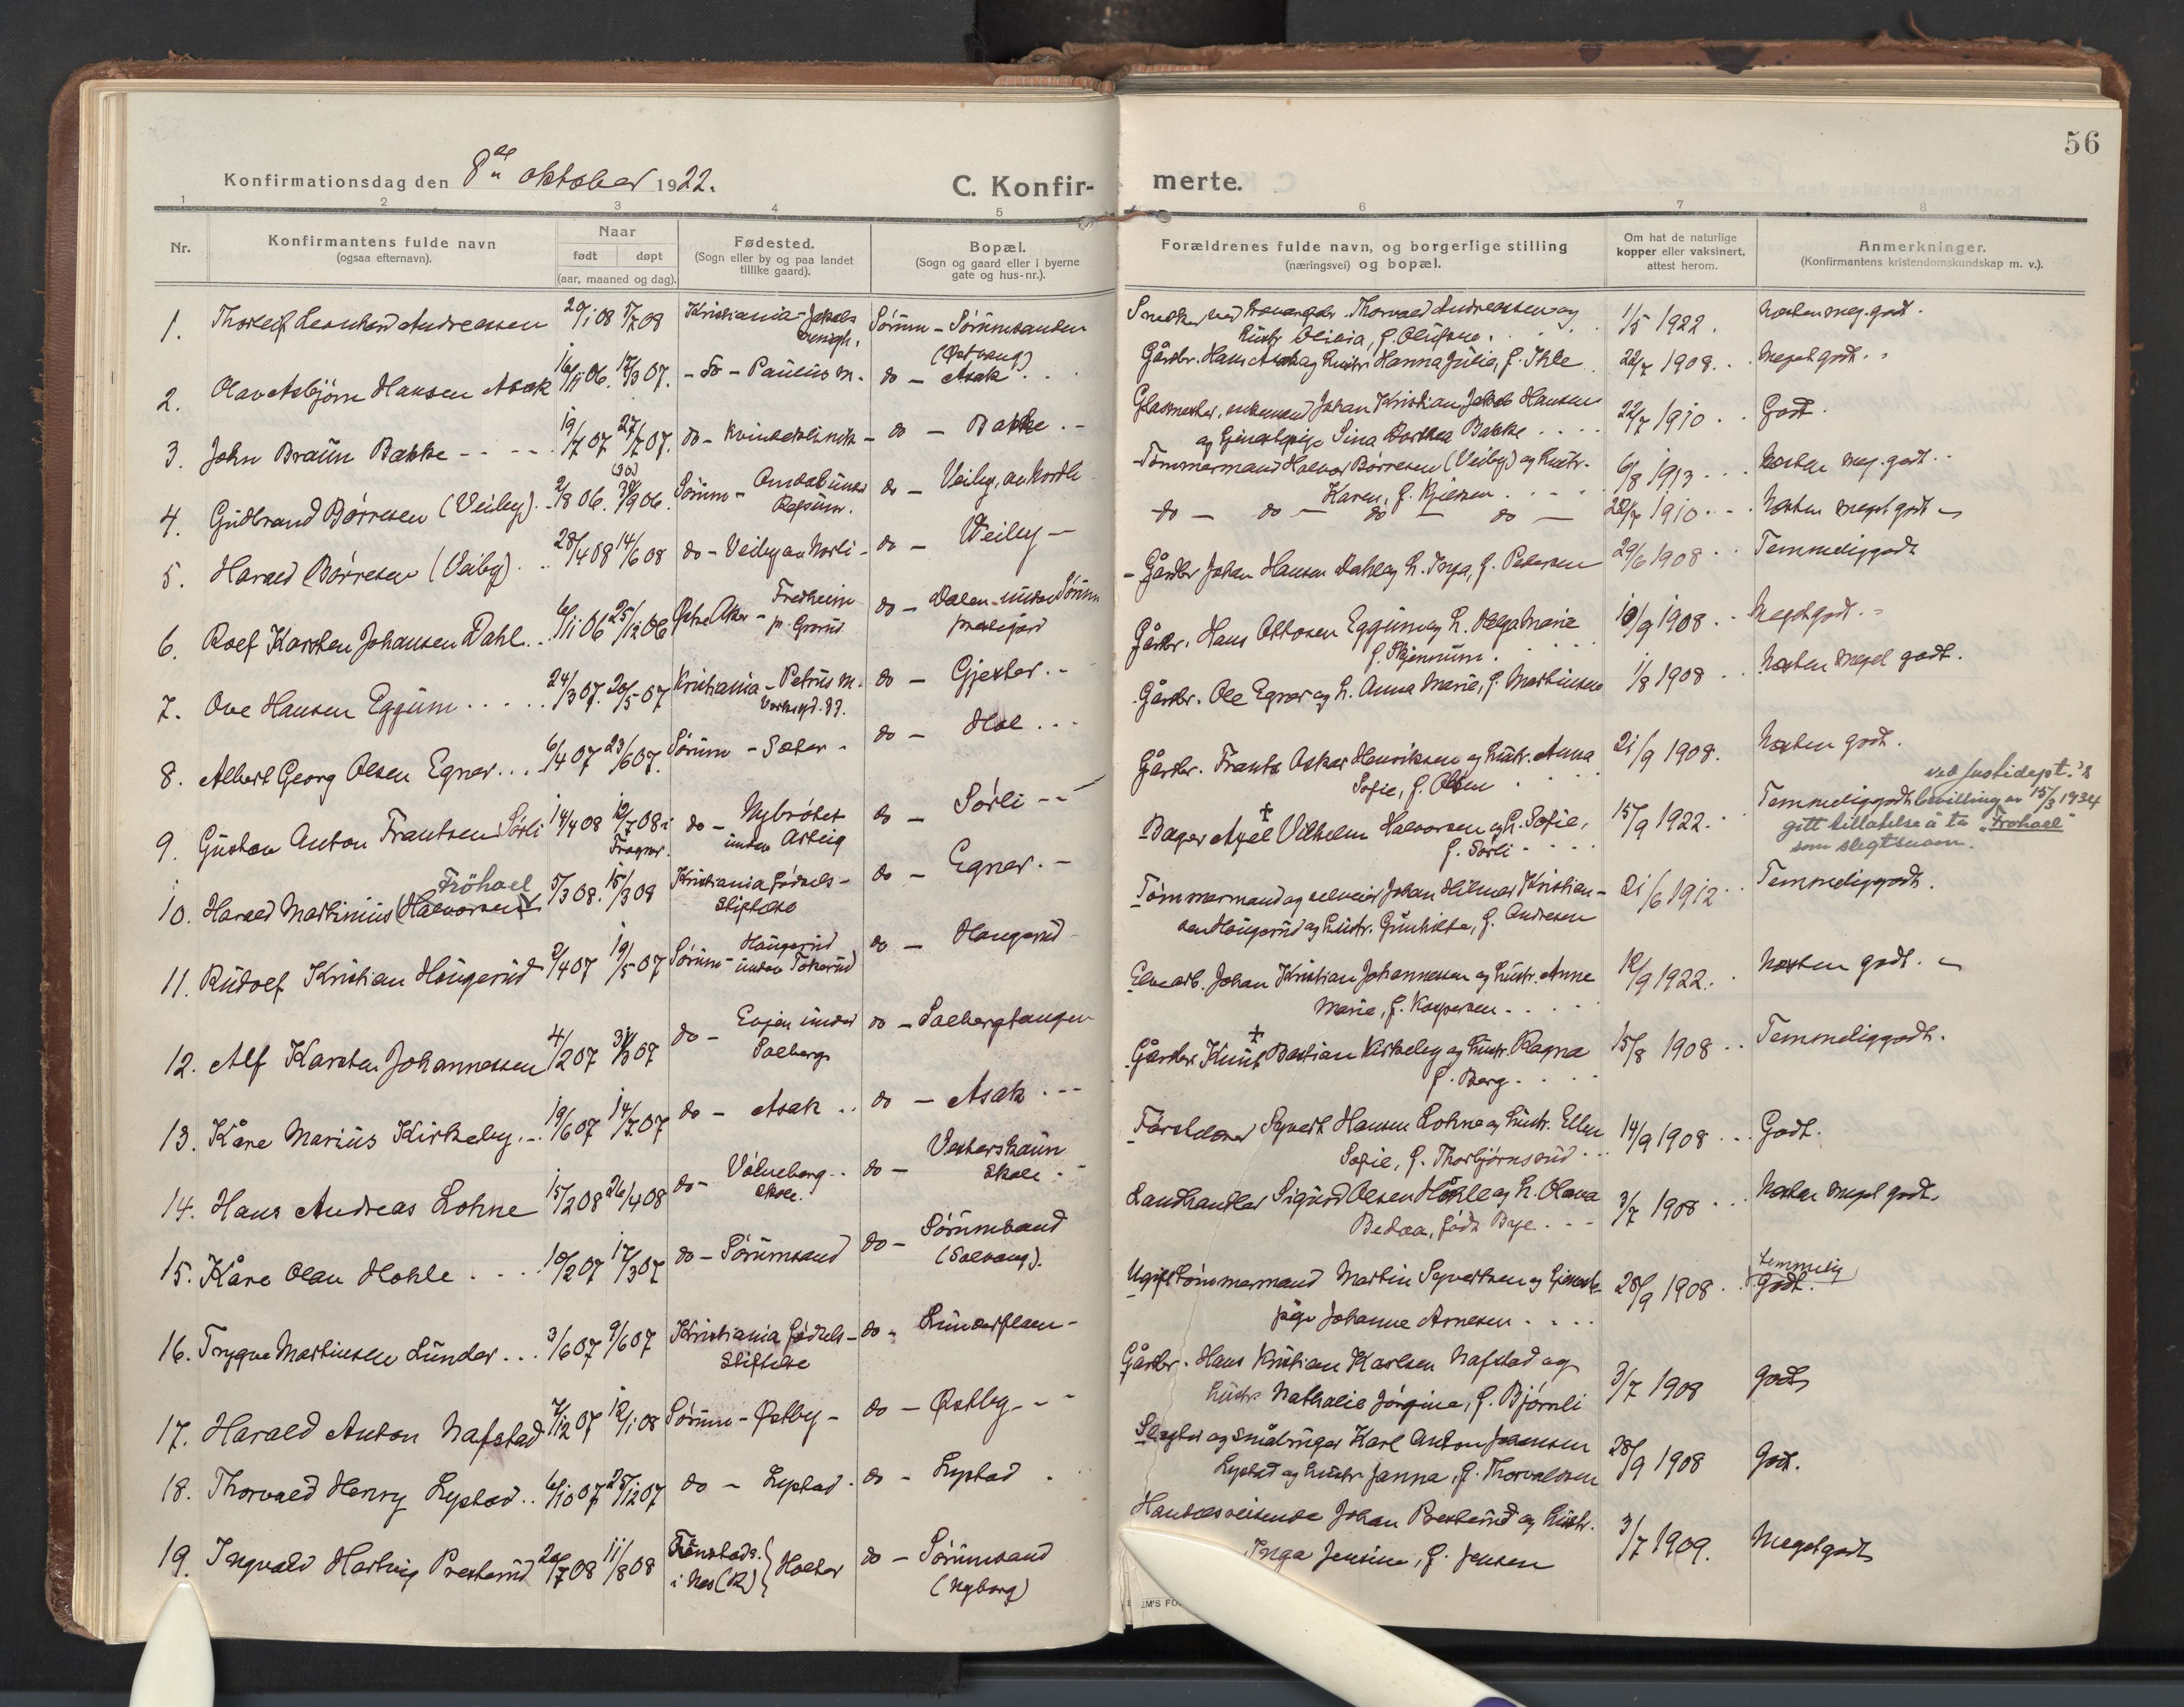 56
Konfirmationsdag den 8de oktober 1922.
C. Konfir-
merte.
1 2 3 4 5 6 7 8
Nr.
Konfirmantens fulde navn
(ogsaa efternavn).
Naar
født døpt
(aar, maaned og dag).
Fødested.
(Sogn eller by og paa landet
tillike gaard).
Bopæl.
(Sogn og gaard eller i byerne
gate og hus-nr.).
Forældrenes fulde navn, og borgerlige stilling
(næringsvei) og bopæl.
Om hat de naturlige
kopper eller vaksinert,
attest herom.
Anmerkninger.
(Konfirmantens kristendomskundskap m. v.).
1. Thorleif Leonhard Andreassen 29/1 08 5/7 08 Kristiania - Jakobs Sørum - Sørumsanden Thorvald Andreassen og 1/5 1922. Næsten meg. godt.
menigh. (Østvang) hustr. Olivia, f. Olufsen.
2. Olav Asbjørn Hansen Asak 16/11 06. 17/3 07. - do - Paulus m. do - Asak Gårdbr. Hans Asak og hustr. Hanna Julia, f. Ihle 22/7 1908. Meget godt.
3. John Braun Bakke 19/7 07 27/7 07. do - Kvindeklinik - do - Bakke Glasmester, enkemand Johan Kristian Jakob Hansen 22/7 1910 Godt.
og tjenestepige Sina Dorthea Bakke
4. Gudbrand Børresen (Veiby) 2/8 06. 30/9 06. Sørum - do - Veiby, av Nordli Tømmermand Halvor Børresen (Veiby) og hustr. 6/8 1913 Næsten meg. godt.
Karen, f. Kjelsen
5. Harald Børresen (Veiby) 28/4 08 14/6 08 do - Veiby av Norli - do - Veiby - do - do - do - do - 22/7 1910 Næsten meget godt
6. Rolf Karsten Johansen Dahl 6/11 06 25/12 06 Østre Aker - Fredheim do - Dalen under Sørum Gårdbr. Johan Hansen Dahl og h. Inga, f. Petersen 29/6 1908 Temmelig godt
pr. Grorud prestegård
7. Ove Hansen Eggum 24/3 07. 20/5 07 Kristiania - Petrus m. do - Gjester. Gårdbr. Hans Ottosen Eggum og h. Olga Marie 10/9 1908 Meget godt.
f. Skjennum.
8. Albert Georg Olsen Egner 6/4 07 23/6 07. Sørum - Sæter - do - Hol Gårdbr. Ole Egner og h. Anna Marie, f. Martinsen 1/8 1908 Næsten meget godt.
9. Gustav Anton Frantsen Sørli 14/4 08 12/7 08 i do - Nybrøtet do - Sørli Gårdbr. Frants Oskar Henriksen og hustr. Anna 21/9 1908. Næsten godt.
Frogner. under Asteig Sofie, f. Olsen
10. Harald Martinius (Halvorsen) Fröhael 5/3 08. 15/3 08 Kristiania fødsels- do - Egner. Bager Axel † Vilhelm Halvorsen og h. Sofie, 15/9 1922. Temmelig godt
stiftelse f. Sørli
ved Justisdept.'s
bevilling av 15/3 1934
gitt tillatelse å ta „Frøhael"
som slegtsnavn.
11. Rudolf Kristian Hougerud 2/4 07 19/5 07 Sørum - Haugerud do - Haugerud Tømmermand og selveier Johan Hilmar Kristian- 21/6 1912 Temmelig godt.
under Tokerud sen Hougerud og hustr. Gunhilda, f. Andresen
12. Alf Karsten Johannessen 4/2 07 31/3 07 do - Evjen under do - Solbergtangen Elvearb. Johan Kristian Johannessen og hustr. Anne 12/9 1922. Næsten godt.
Solberg Marie, f. Kaspersen
13. Kåre Marius Kirkeby 19/6 07 14/7 07 do - Asak do - Asak Gårdbr. Knut † Bastian Kirkeby og hustr. Ragna 15/8 1908 Temmelig godt.
f. Berg
14. Hans Andreas Lohne 15/2 08 26/4 08 do - Vølneberg do - Vesterskaun Syvert Hansen Lohne og hustr. Ellen 14/9 1908 Godt.
skole. skole Sofie, f. Thorbjørnsrud
15. Kåre Olav Hohle 10/2 07 17/3 07 do - Sørumsand do - Sørumsand Landhandler Sigurd Olsen Hohle og h. Olava 3/7 1908 Næsten meget godt.
(Solvang). Bedea, født Bye
16. Trygve Martinsen Lunder 3/6 07 9/6 07 Kristiania fødsels- do - Lunderfloen - Ugift tømmermand Martin Syvertsen og tjeneste- 28/9 1908 temmelig godt.
stiftelse pige Johanne Arnesen
17. Harald Anton Nafstad 7/12 07 12/1 08 Sørum - Østby - do - Østby Gårdbr. Hans Kristian Karlsen Nafstad og 3/7 1908 Godt
hustr. Nathalie Jørgine, f. Bjørnli
18. Thorvald Henry Lystad 6/10 07 25/12 07 do - Lystad do - Lystad Slagter og småbruger Karl Anton Jaensen 28/9 1908 Godt.
Lystad og hustr. Janna, f. Thorvaldsen
19. Ingvald Hartvig Presterud 20/7 08 11/8 08 Fenstads. } Holter do - Sørumsand Handelsreisende Johan Presterud og hustr. 3/7 1909. Meget godt
i Nes (R.) (Nyborg) Inga Jensine, f. Jensen